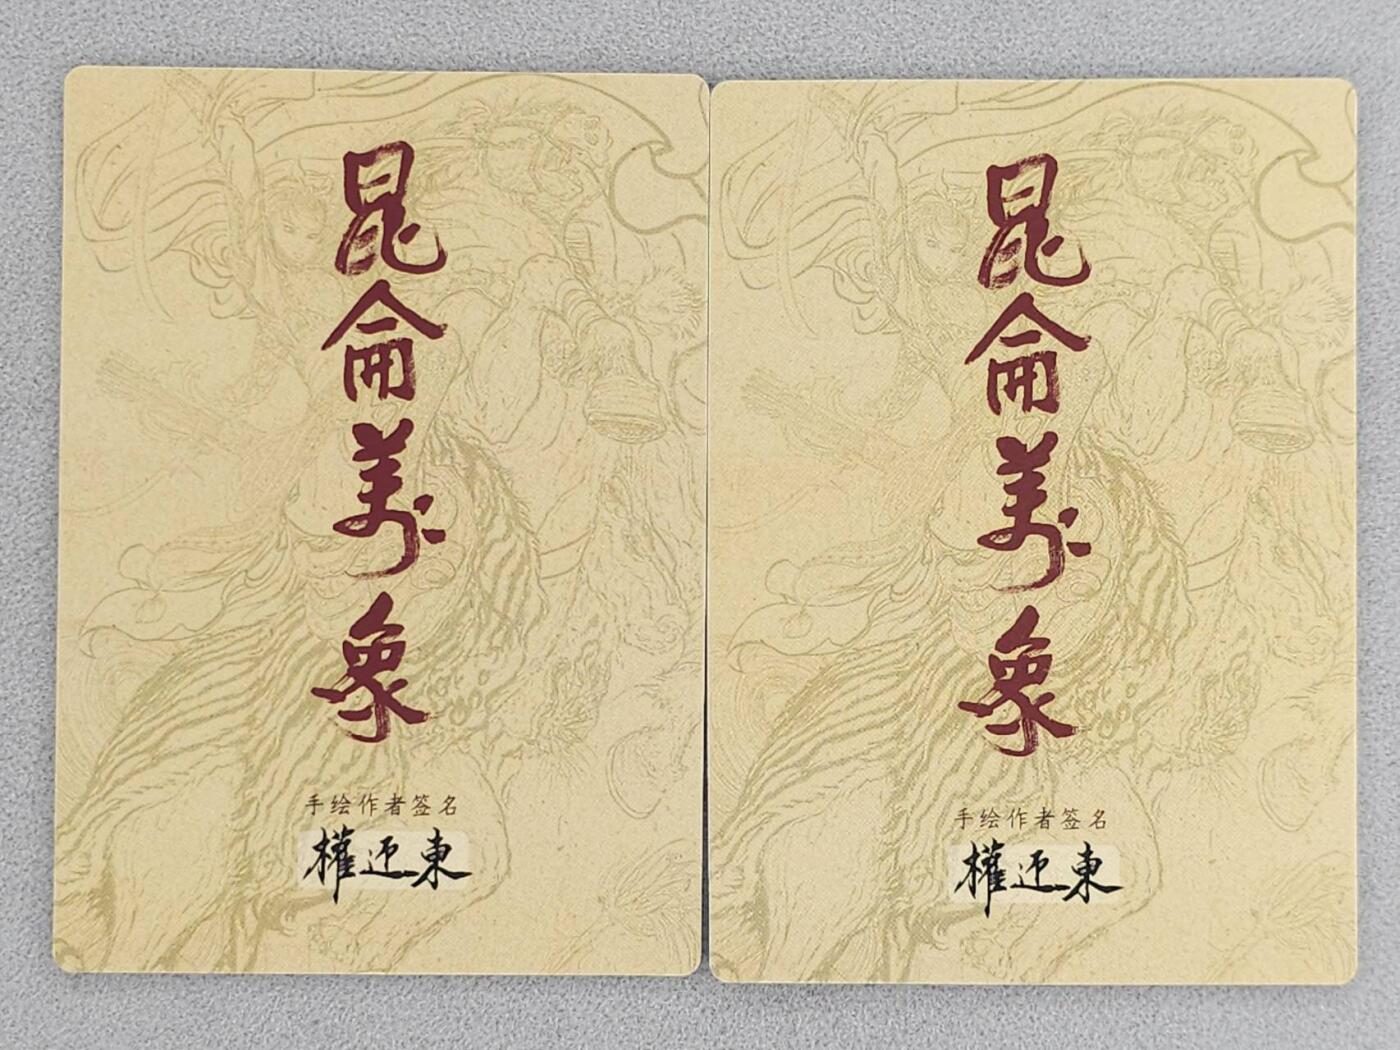 昆
侖
象
手绘作者签名
權迎東
昆
侖
象
手绘作者签名
權迎東